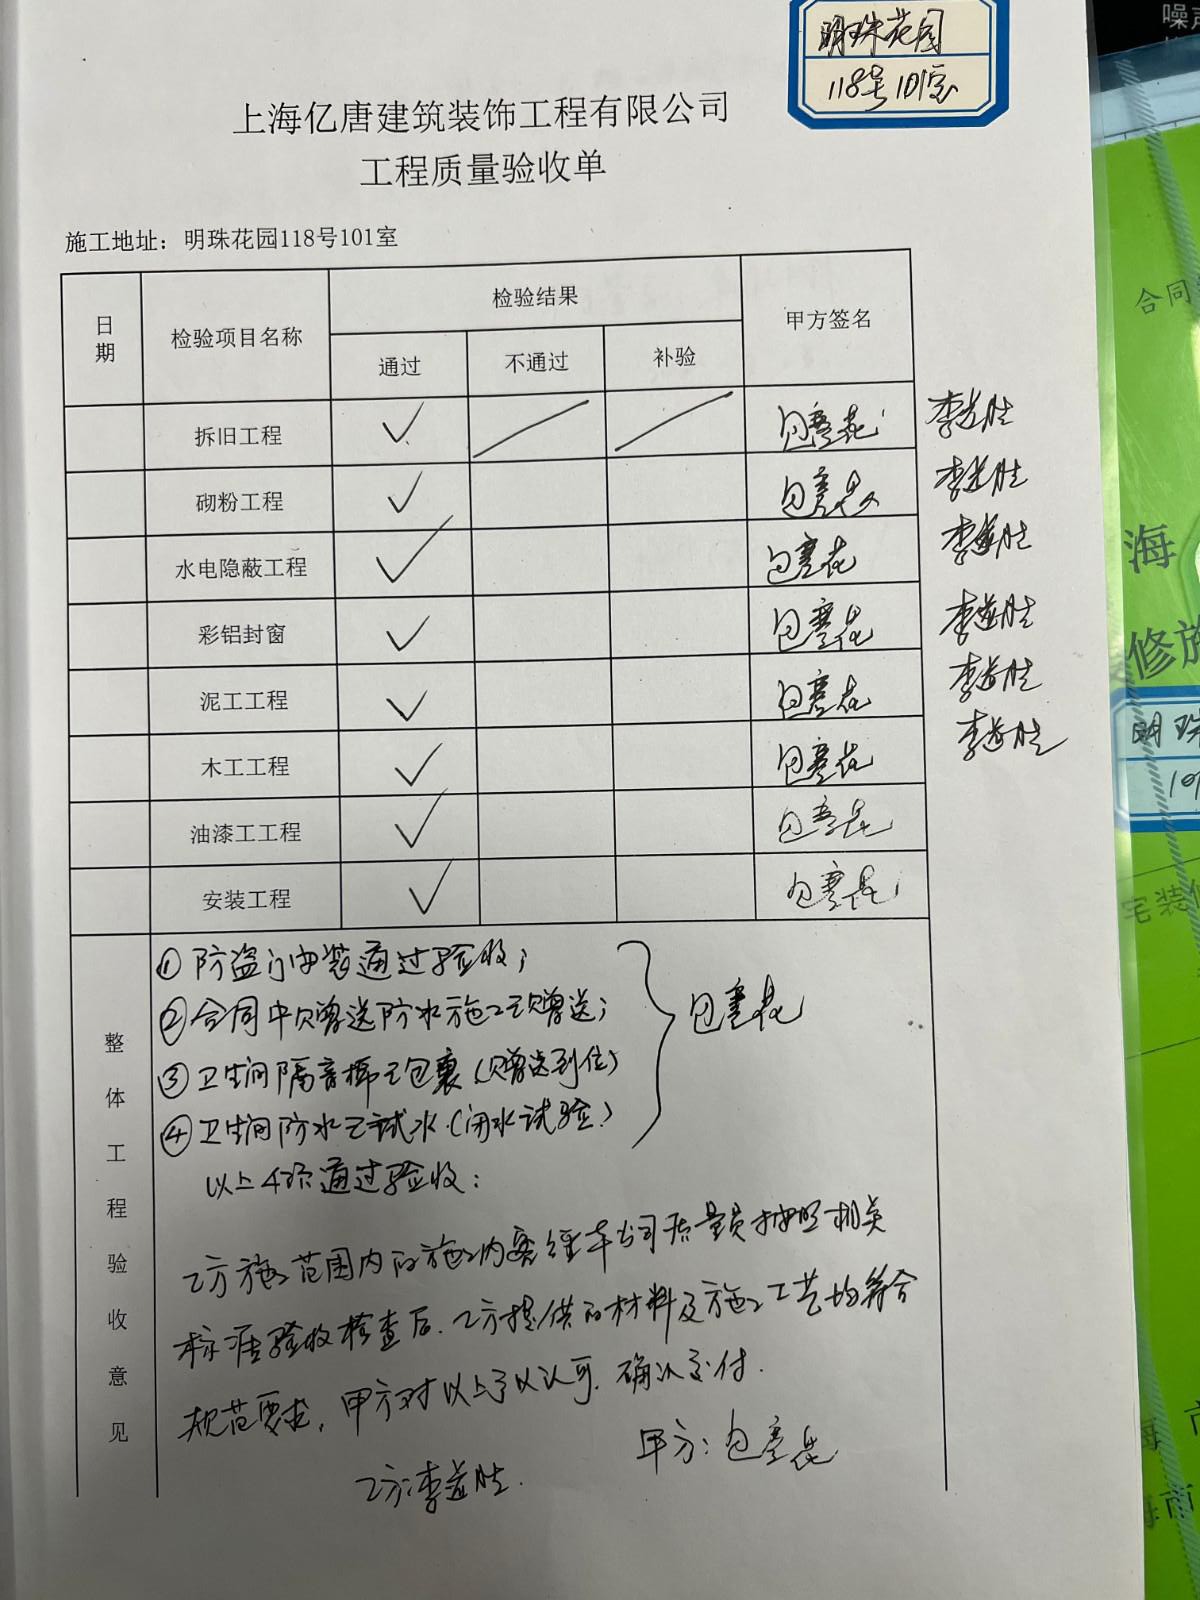 明珠花园
118号101室
上海亿唐建筑装饰工程有限公司
工程质量验收单
施工地址：明珠花园118号101室
日期 检验项目名称 检验结果 甲方签名
通过 不通过 补验
拆旧工程 ✓
砌粉工程 ✓
水电隐蔽工程 ✓
彩铝封窗 ✓
泥工工程 ✓
木工工程 ✓
油漆工工程 ✓
安装工程 ✓
整体工程验收意见
①防盗门安装通过验收；
②合同中赠送防水施工已赠送；
③卫生间隔音棉已包裹（赠送到位）
④卫生间防水已试水（闭水试验）
以上4项通过验收：
乙方施工范围内的施工内容经本公司质量员按照相关
标准验收检查后，乙方提供的材料及施工工艺均符合
规范要求，甲方对以上予以认可，确认交付．
甲方：
乙方：
噪声
合同
海
修施
明珠
101
宅装修
海 市
海市